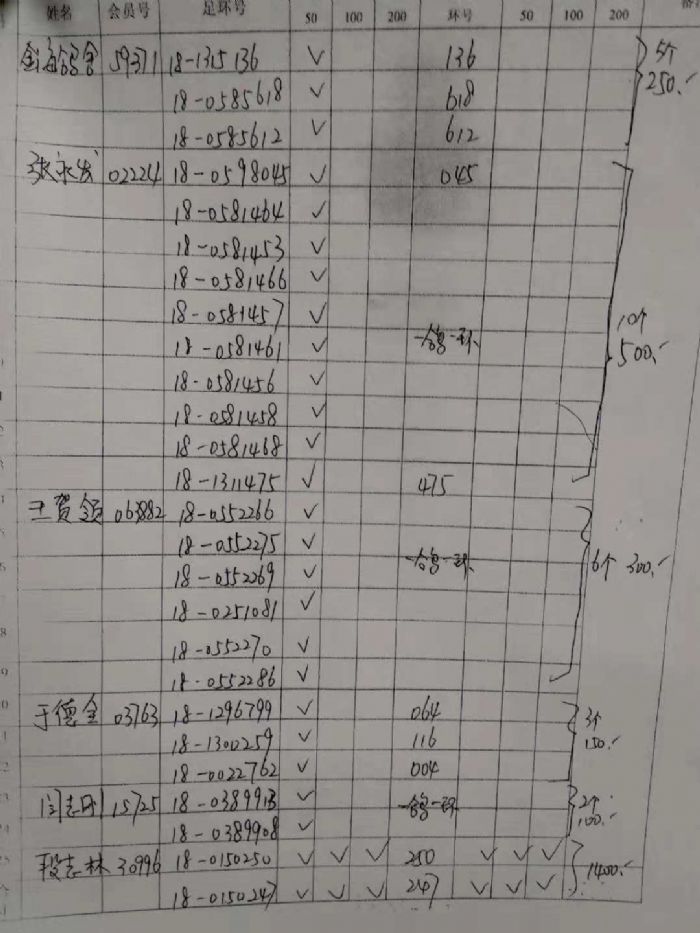 姓名 会员号 足环号 50 100 200 环号 50 100 200
59371 18-1315136 ✓ 136 5个
18-0585618 ✓ 618 250.-
18-0585612 ✓ 612
张永发 02224 18-0598045 ✓ 045
18-0581464 ✓
18-0581453 ✓
18-0581466 ✓
18-0581457 ✓ 10个
18-0581461 ✓ 一舍一环 500.-
18-0581456 ✓
18-0581458 ✓
18-0581468 ✓
18-1311475 ✓ 475
王贺领 063882 18-0552266 ✓
18-0552275 ✓ 一舍一环
18-0552269 ✓ 6个 300.-
18-0251081 ✓
18-0552270 ✓
18-0552286 ✓
于德全 03763 18-1296799 ✓ 064 3个
18-1300259 ✓ 116 150.-
18-0022762 ✓ 004
15725 18-0389913 ✓ 一舍一环 2个
18-0389908 ✓ 100.-
段志林 30996 18-0150250 ✓ ✓ ✓ 250 ✓ ✓ ✓ 1400.-
18-0150247 ✓ ✓ ✓ 247 ✓ ✓ ✓